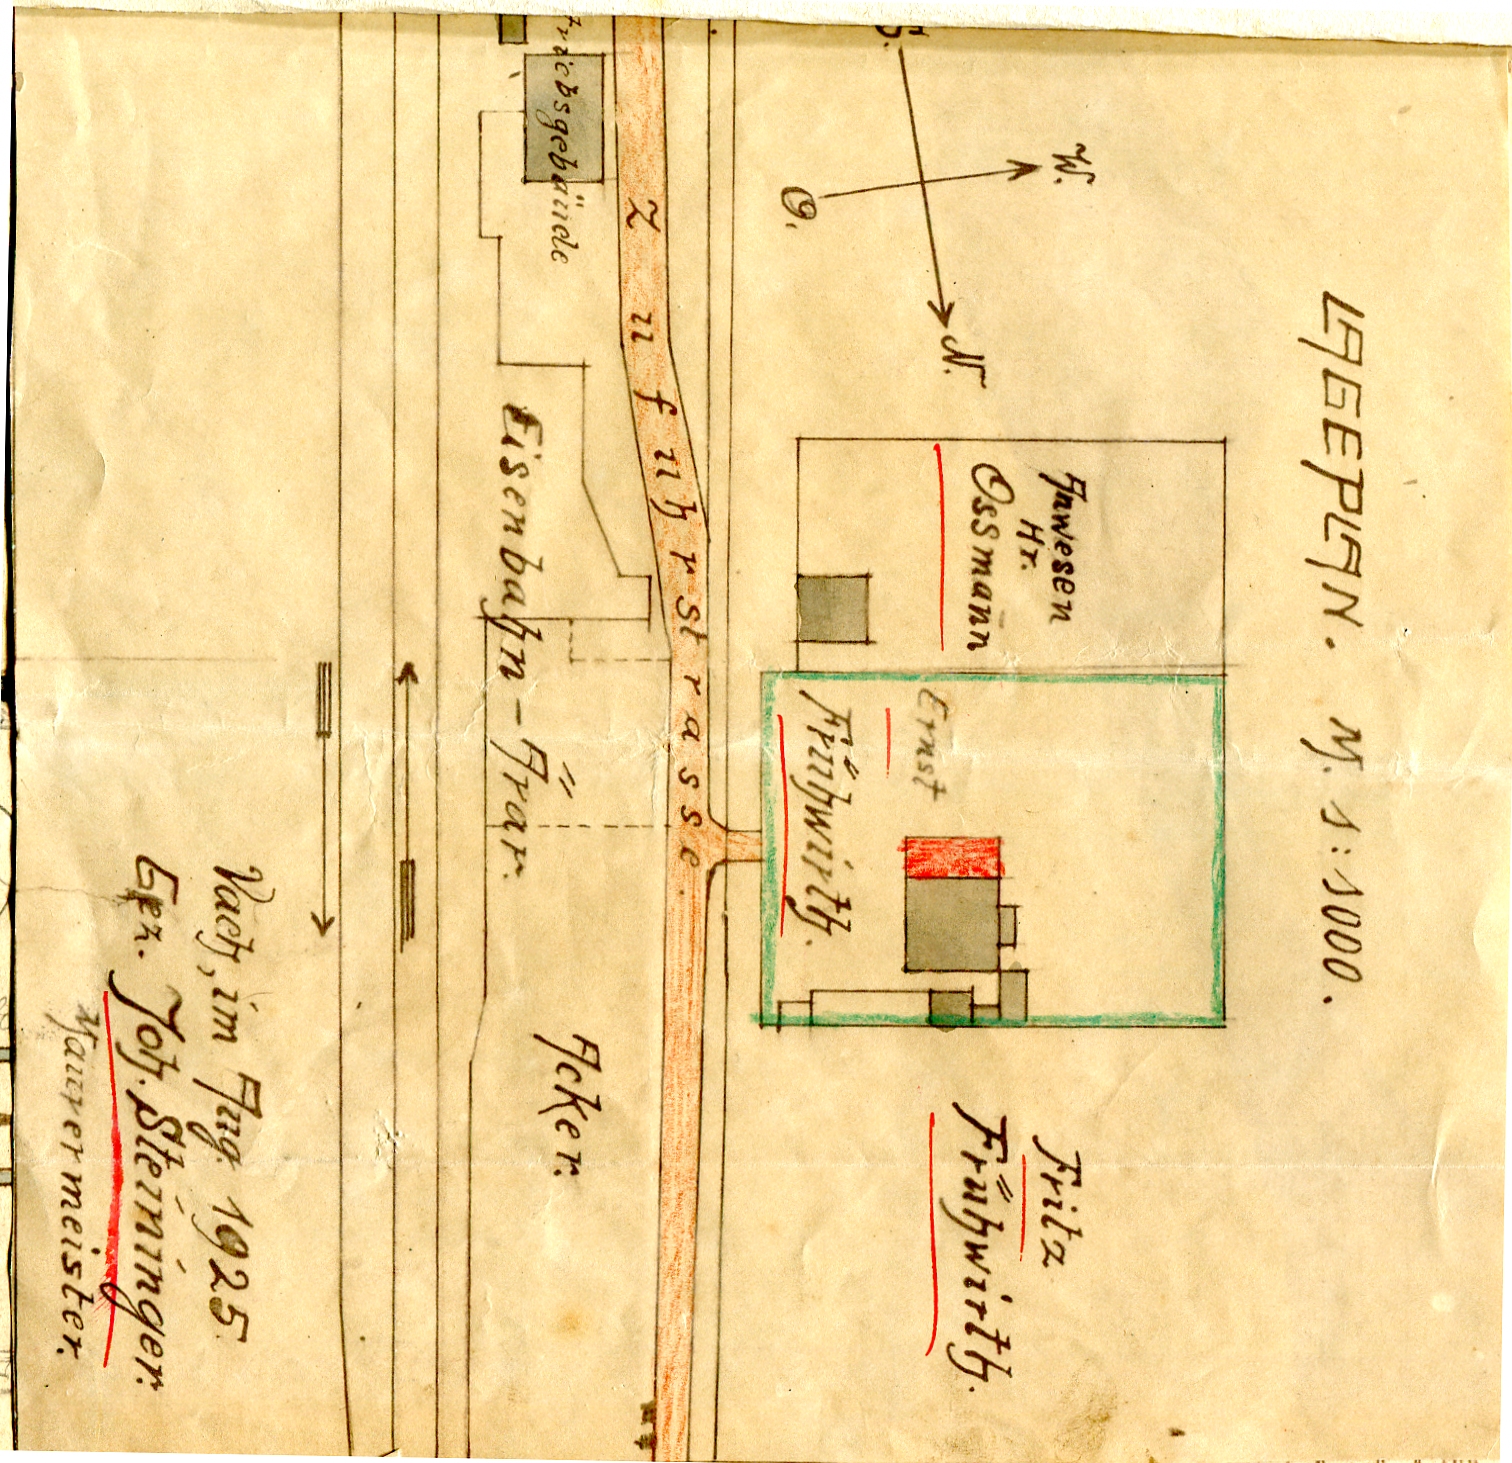 LAGEPLAN. M. 1:1000.
W.
N.
O.
S.
Anwesen
Hr.
Ossmann
Ernst
Frühwirth.
Fritz
Frühwirth.
Zufuhrstrasse
triebsgebäude
Eisenbahn-Ärar.
Acker.
Vach, im Aug. 1925.
Gez. Joh. Steininger.
Maurermeister.